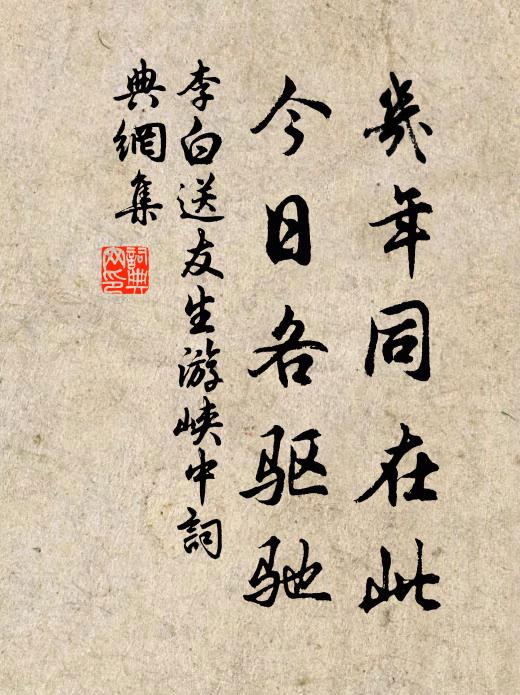 幾年同在此
今日各驱驰
李白送友生游峡中詞
典網集
詞典
文印